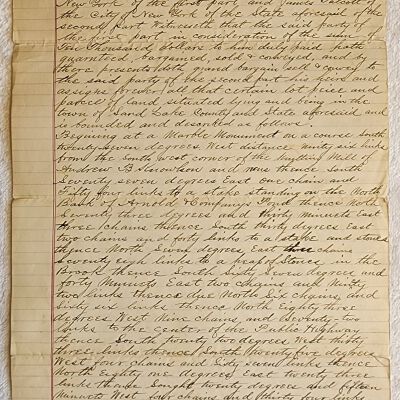 New York of the first part and James Talcott of
the City of New York of the State aforesaid of the
second part Witnesseth that the said party of
the first part in consideration of the sum of
Ten Thousand dollars to him duly paid hath
quarnteed, bargained, sold & conveyed, and by
these presents doth grant bargain sell & convey to
the said party of the second part his heirs and
assigns forever, all that certain lot peice and
parcel of land situated lying and being in the
town of Sand Lake County and State aforesaid and
is bounded and discribed as follows.
Begining at a Marble Monument on a course South
twenty seven degrees West distance ninty six links
from the South West corner of the Knitting Mill of
Andrew B. and runs thence South
Seventy seven degrees East One chain and
Fifty four links to a stake standing on the North
Bank of Arnold & Companys Pond thence North
Seventy three degrees and thirty minuets East
three chains thence South thirty degrees East
two chains and forty links to a stake and stones
thence North Seven degrees East three chains
Seventy eigh links to a heap of Stones in the
Brook thence South Sixty Seven degrees and
forty Minuets East two chains and Ninty
two links thence due North Six chains and
Sixty six links thence North Eighty three
degrees West Nine chains and Seventy two
links to the center of the Public Highway
thence South twenty two degrees West thirty
three links thence South twenty five degrees
West four chains and Sixty seven links thence
North Eighty one degrees East twenty three
links thence Sought twenty degrees and fifteen
Minuets West four chains and thirty four links